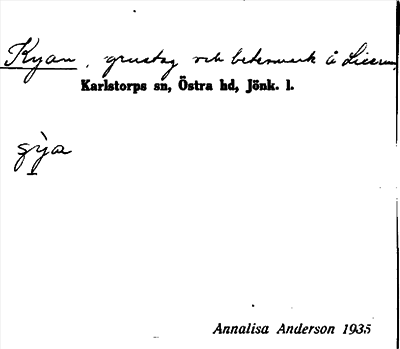 Kyan, grustag och betesmark å
Karlstorps sn, Östra hd, Jönk. l.
Annalisa Anderson 1935